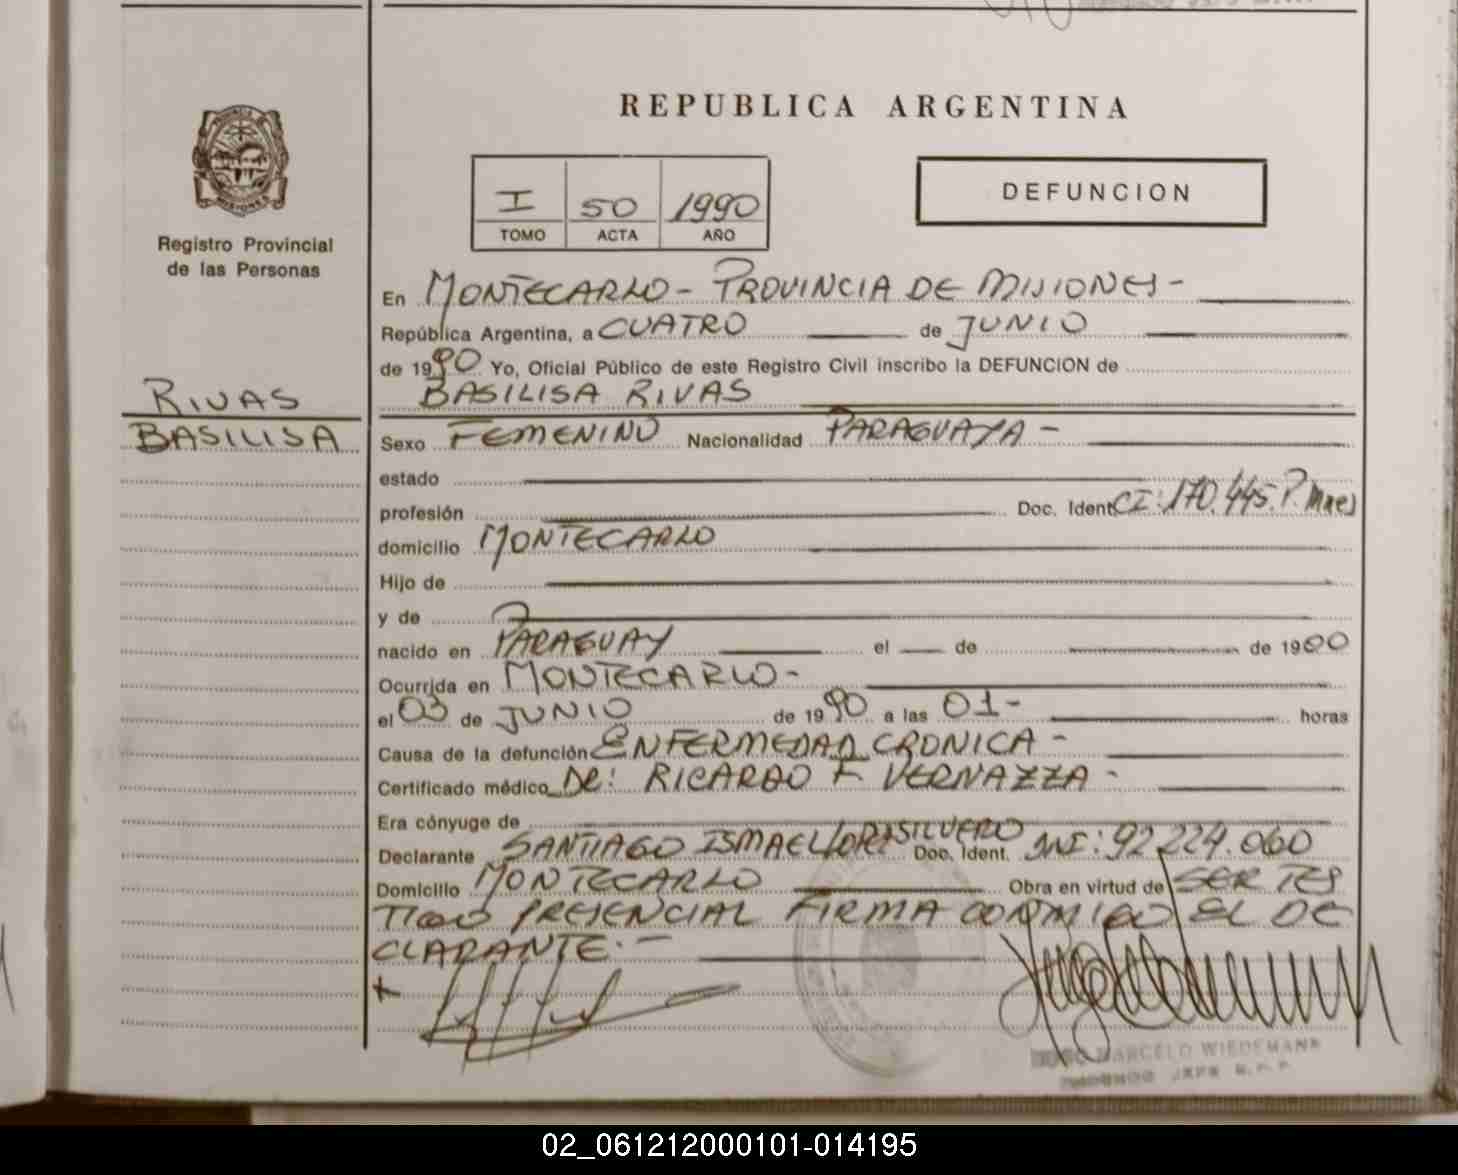 REPUBLICA ARGENTINA
I 50 1990
TOMO ACTA AÑO
DEFUNCION
Registro Provincial
de las Personas
RIVAS
BASILISA
En MONTECARLO - PROVINCIA DE MISIONES -
República Argentina, a CUATRO de JUNIO
de 1990 Yo, Oficial Público de este Registro Civil inscribo la DEFUNCION de
BASILISA RIVAS
Sexo FEMENINO Nacionalidad PARAGUAYA -
estado
profesión Doc. Ident. CI: 170.445. P.
domicilio MONTECARLO
Hijo de
y de
nacido en PARAGUAY el de de 1900
Ocurrida en MONTECARLO -
el 03 de JUNIO de 1990 a las 01 - horas
Causa de la defunción ENFERMEDAD CRONICA -
Certificado médico DR: RICARDO F. VERNAZZA -
Era cónyuge de
Declarante SANTIAGO ISMAEL Doc. Ident. DNI: 92.224.060
Domicilio MONTECARLO Obra en virtud de SER TES
TIGO PRESENCIAL FIRMA CONMIGO EL DE
CLARANTE. -
MARCELO WIEDEMANN
02_061212000101-014195